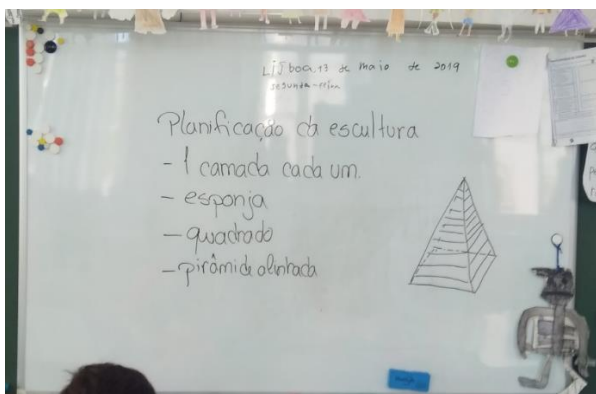 Lisboa, 17 de maio de 2019
segunda-feira
Planificação da escultura
- 1 camada cada um.
- esponja
- quadrado
- pirâmide alinhada